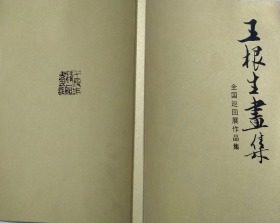 王根生畫集
全国巡回展作品集